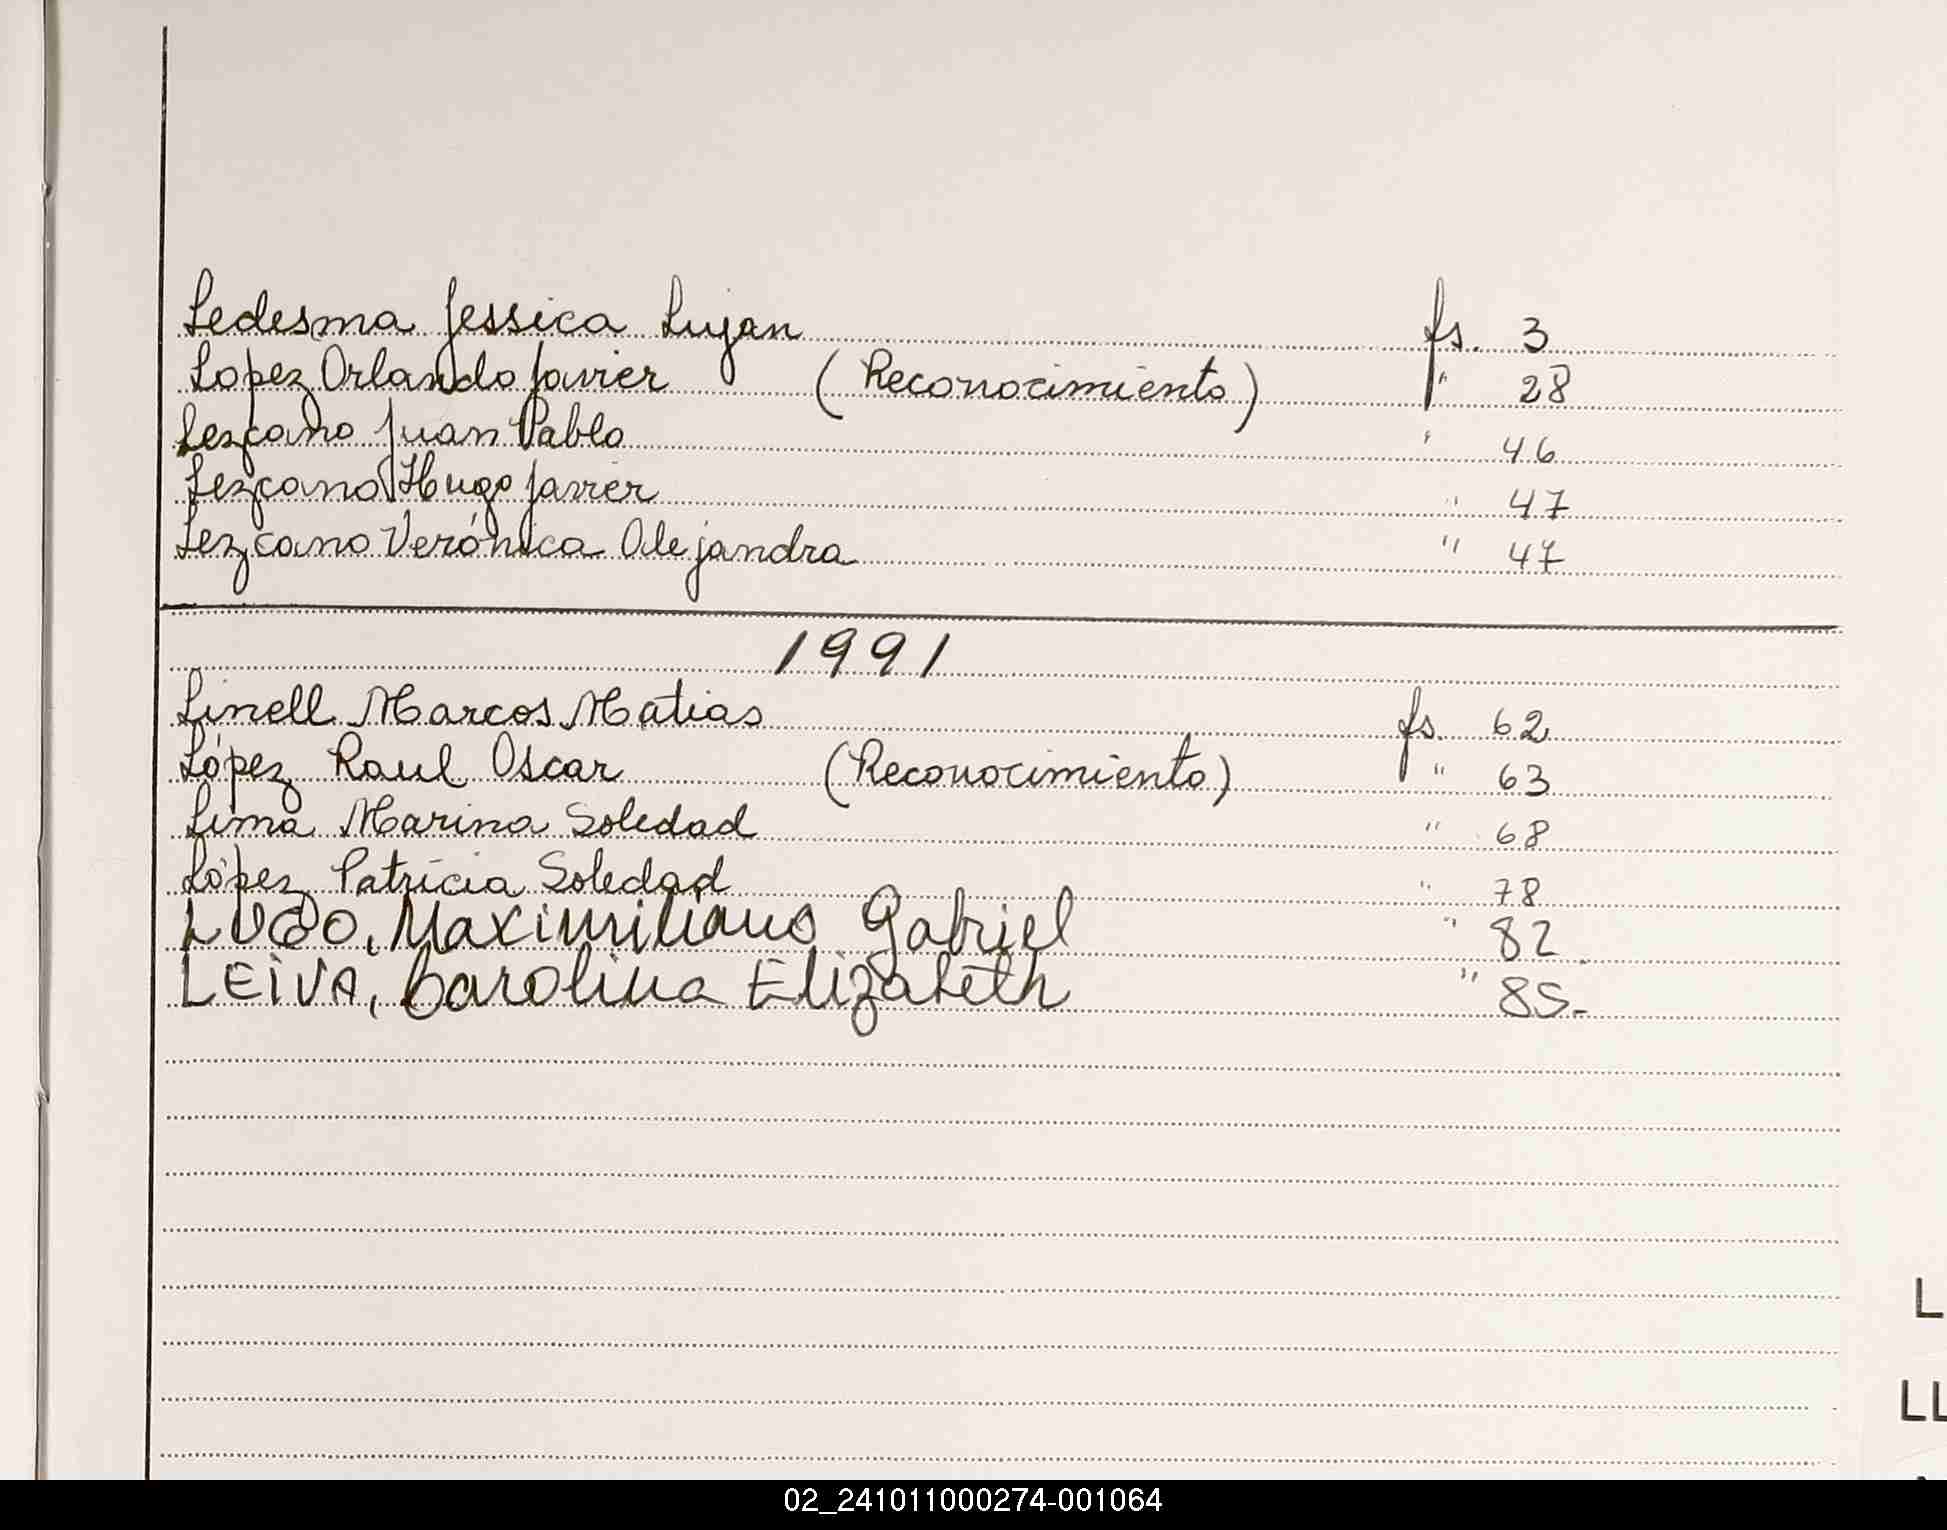 Ledesma Jessica Lujan fs. 3
Lopez Orlando Javier (Reconocimiento) " 28
Lezcano Juan Pablo " 46
Lezcano Hugo Javier " 47
Lezcano Verónica Alejandra " 47
1991
Linell Marcos Matias fs. 62
López Raul Oscar (Reconocimiento) " 63
Lima Marina Soledad " 68
López Patricia Soledad " 78
LUGO, Maximiliano Gabriel " 82
LEIVA, Carolina Elizabeth " 85.-
L
LL
02_241011000274-001064